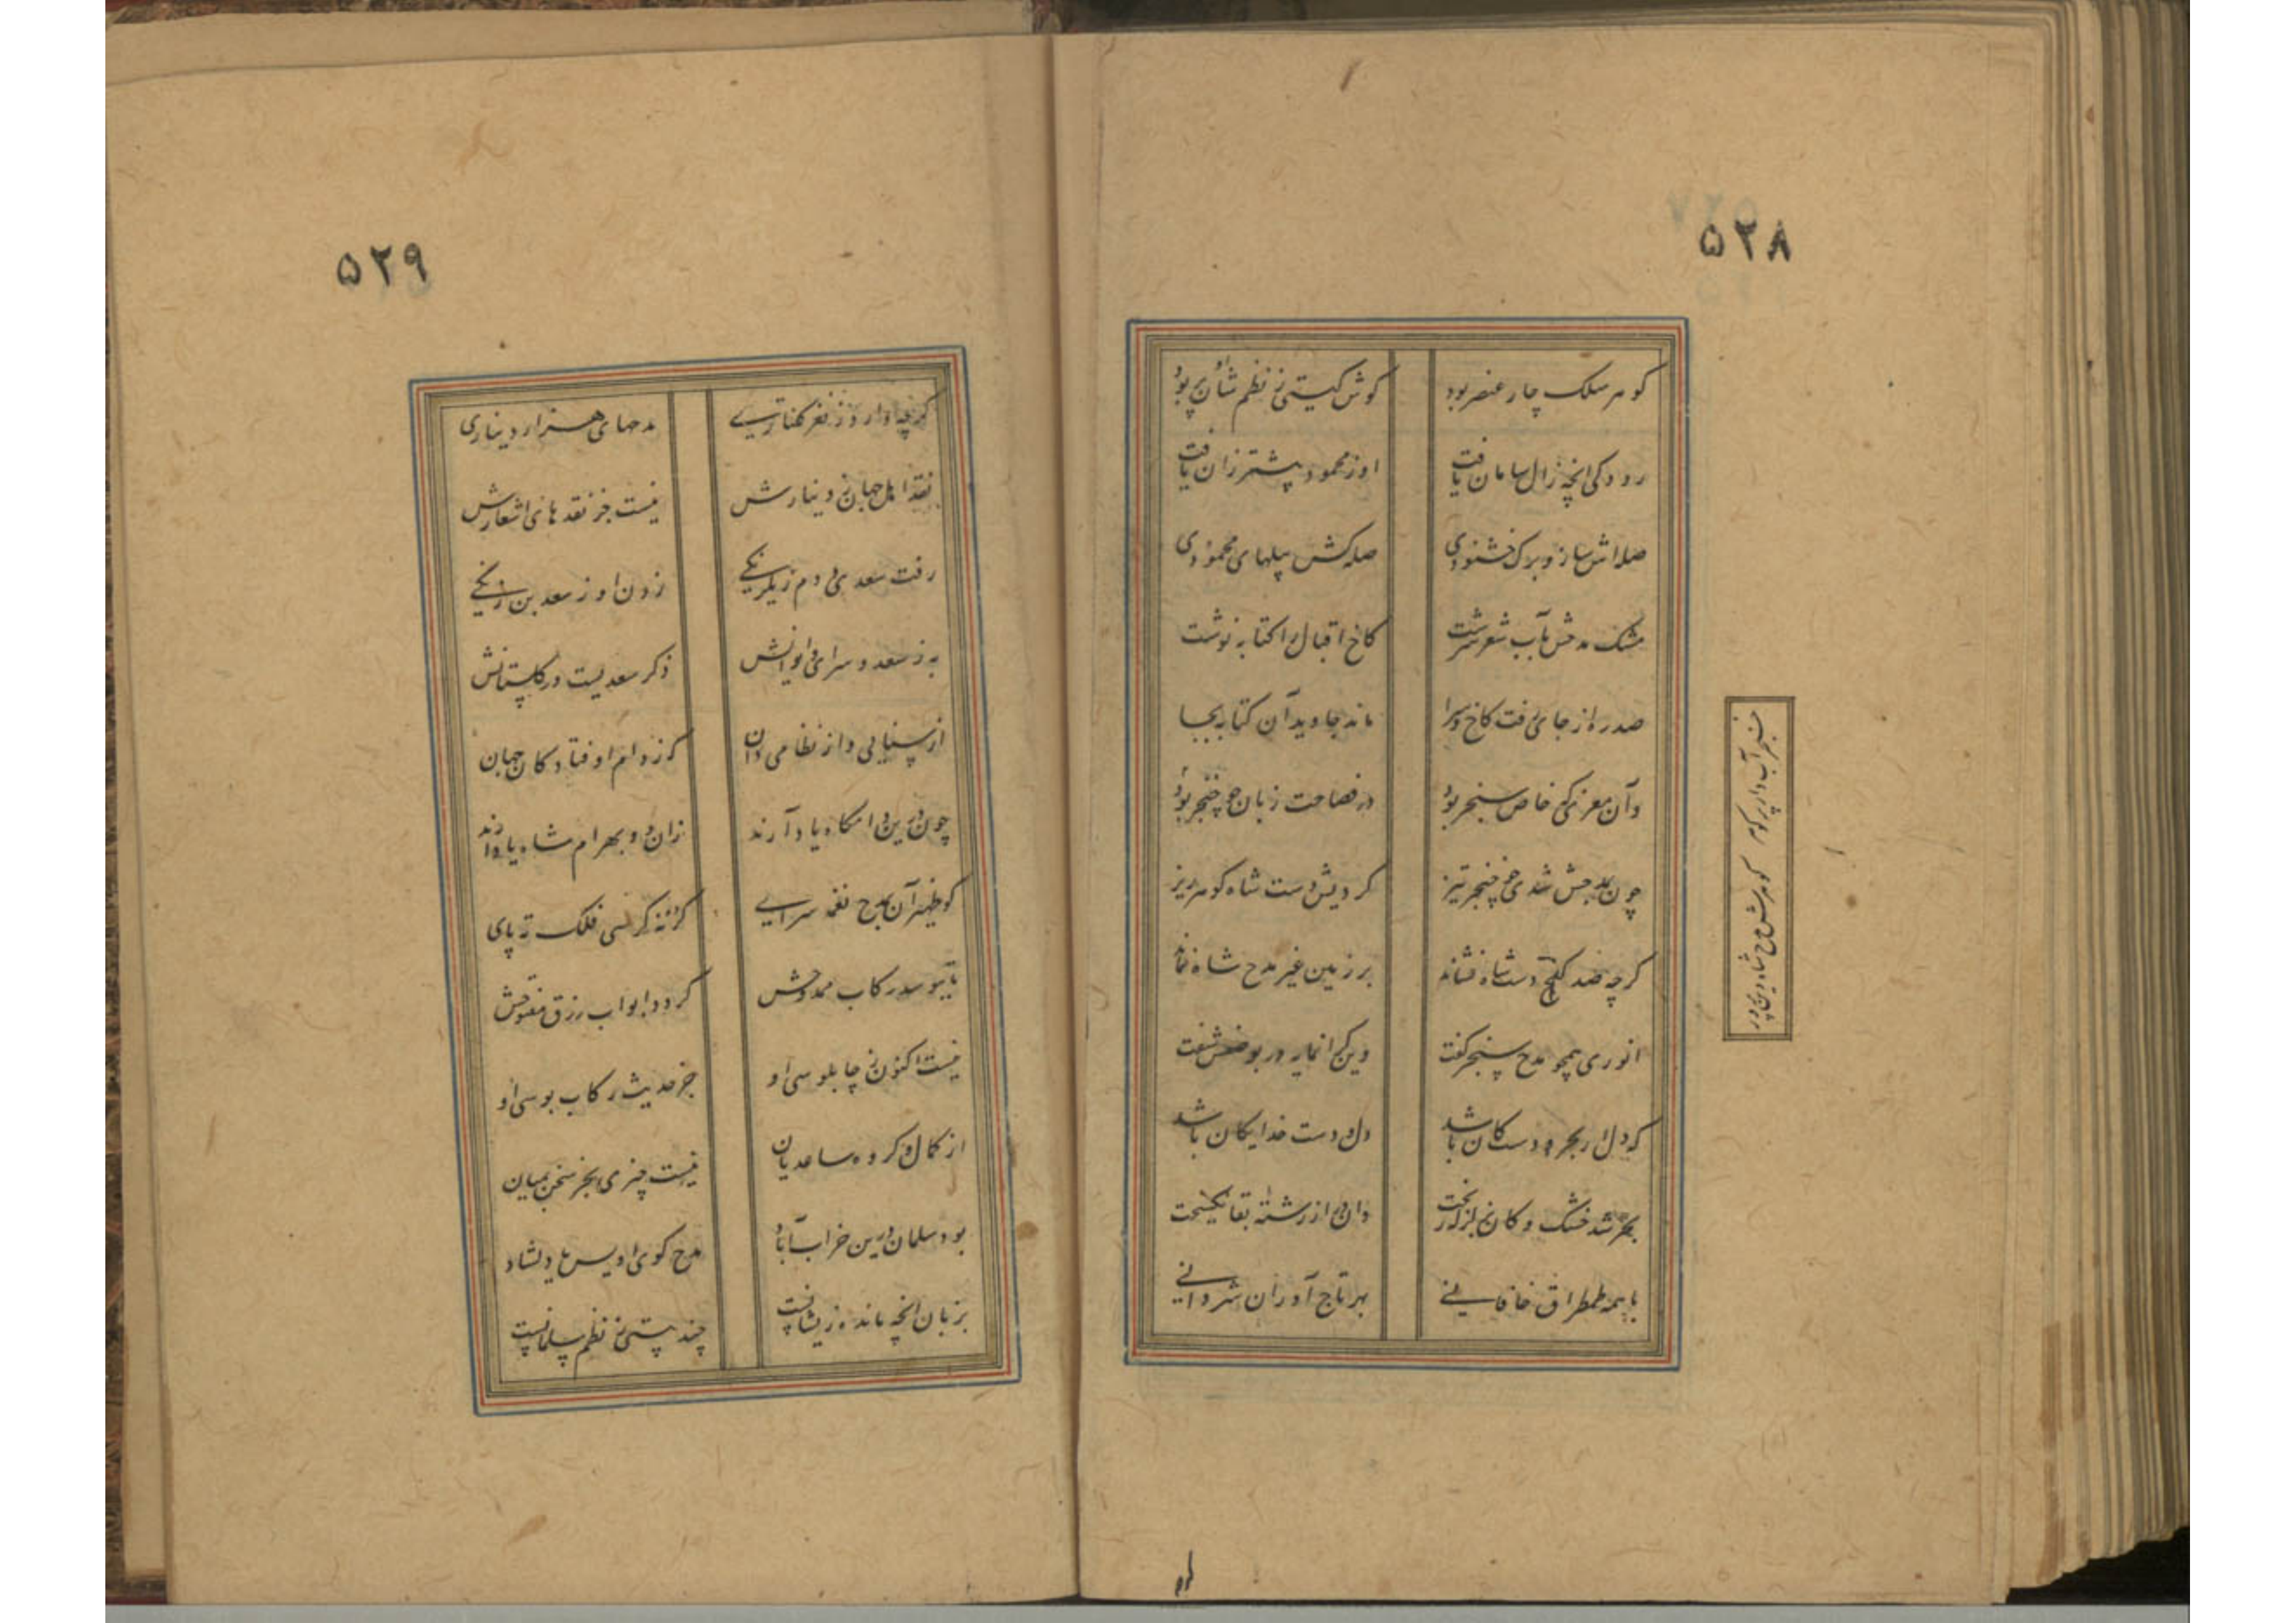 ۵۲۸
گوهر سلک چار عنصر بود گوش گیتی ز نظم شان پر بود
رودکی انچه زال سامان یافت او ز محمود بیشتر زان یافت
صله اش ساز و برک خشنودی صله کش پیلهای محمودی
مشک مدحش بآب شعر سرشت کاخ اقبال را کتابه نوشت
صدره از جای رفت کاخ و سرا ماند جاوید آن کتابه بجا
وآن معزی که خاص سنجر بود در فصاحت زبان چو خنجر بود
چون بمدحش شدی چو خنجر تیز کردیش دست شاه کوهر ریز
کرچه صد کنج دست شاه فشاند بر زمین غیر مدح شاه نماند
انوری همچو مدح سنجر گفت وین گرانمایه در بوصفش سفت
که دل ار بحر و دست کان باشد دل و دست خدایکان باشد
بحر شد خشک و کان بزلزله ریخت وان در از رشته بقا نکسیخت
با همه طمطراق خاقانی بهر تاج آوران شروانی
خنجر آب دار پر کوهر کوهرش مدح شاه دین پرور
۵۲۹
کرچه دارد ز نغز کفتاری مدحهای هزار دیناری
نقد اهل جهان ز دینارش نیست جز نقدهای اشعارش
رفت سعدی و دم ز یکرنکی زدن او ز سعد بن زنکی
به ز سعد و سرای و ایوانش ذکر سعدیست در کلستانش
از سنایی و از نظامی دان که ز دام اوفتادکان جهان
چون درین دامکاه یاد آرند زان دو بهرام شاه یاد آرند
کو ظهیر آن بمدح نغمه سرای کز نه کرسی فلک ته پای
تا ببوسد رکاب ممدوحش کردد ابواب رزق مفتوحش
نیست اکنون ز چابلوسی او جز حدیث رکاب بوسی او
از کمال و کروه ساعدیان نیست چیزی بجز سخن بمیان
بود سلمان درین خراب آباد مدح کوی اویس با دلشاد
بر زبان انچه مانده زیشانست چند بیتی ز نظم سلمانست